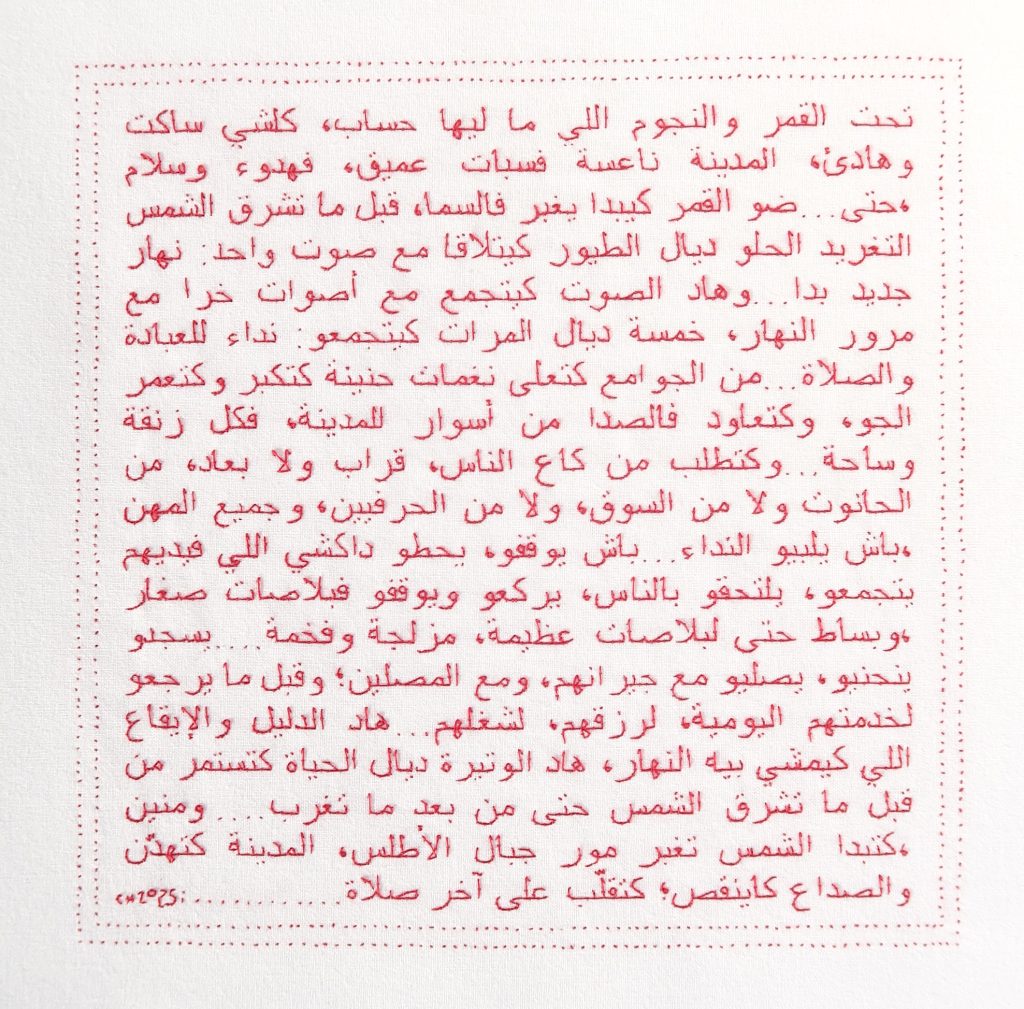 تحت القمر والنجوم اللي ما ليها حساب، كلشي ساكت
وهادئ، المدينة ناعسة فسبات عميق، فهدوء وسلام
،حتى...ضو القمر كيبدا يغبر فالسما، قبل ما تشرق الشمس
التغريد الحلو ديال الطيور كيتلاقا مع صوت واحد: نهار
جديد بدا...وهاد الصوت كيتجمع مع أصوات خرا مع
مرور النهار، خمسة ديال المرات كيتجمعو: نداء للعبادة
والصلاة...من الجوامع كتعلى نغمات حنينة كتكبر وكتعمر
الجو، وكتعاود فالصدا من أسوار للمدينة، فكل زنقة
وساحة...وكتطلب من كاع الناس، قراب ولا بعاد، من
الحانوت ولا من السوق، ولا من الحرفيين، وجميع المهن
،باش يلبيو النداء...باش يوقفو، يحطو داكشي اللي فيديهم
يتجمعو، يلتحقو بالناس، يركعو ويوقفو فبلاصات صغار
،وبساط حتى لبلاصات عظيمة، مزلجة وفخمة....يسجدو
ينحنيو، يصليو مع جيرانهم، ومع المصلين؛ وقبل ما يرجعو
لخدمتهم اليومية، لرزقهم، لشغلهم...هاد الدليل والإيقاع
اللي كيمشي بيه النهار، هاد الوتيرة ديال الحياة كتستمر من
قبل ما تشرق الشمس حتى من بعد ما تغرب....ومنين
،كتبدا الشمس تغبر مور جبال الأطلس، المدينة كتهدّن
والصداع كاينقص؛ كتقلّب على آخر صلاة............:CH2025